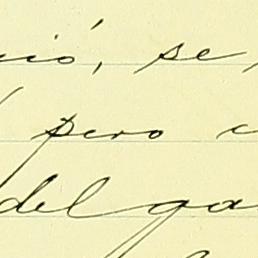 ió, se
pero
del ga